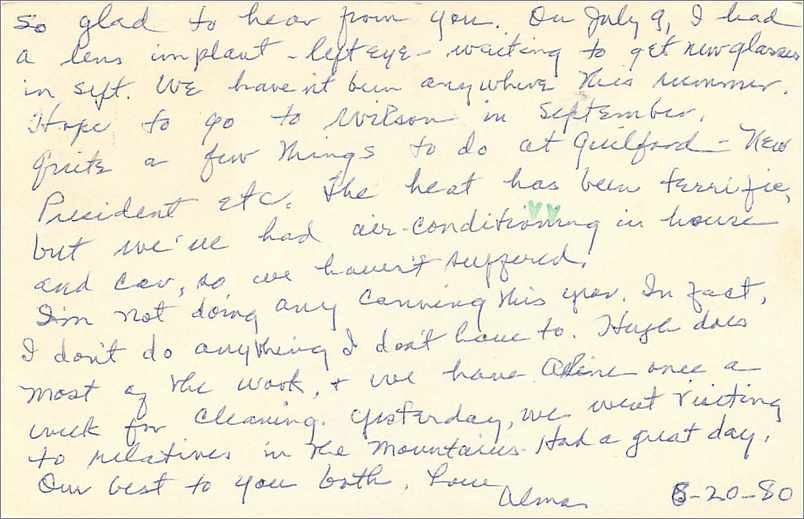 So glad to hear from you. On July 9, I had
a lens implant - left eye - waiting to get new glasses
in Sept. We haven't been anywhere this summer.
Hope to go to Wilson in September.
Quite a few things to do at Guilford - New
President etc. The heat has been terrific,
but we've had air-conditioning in house
and car, so we haven't suffered.
I'm not doing any canning this year. In fact,
I don't do anything I don't have to. Hugh does
most of the work, + we have Aline once a
week for cleaning. Yesterday, we went visiting
to relatives in the mountains. Had a great day.
Our best to you both. Love
Alma 8-20-80